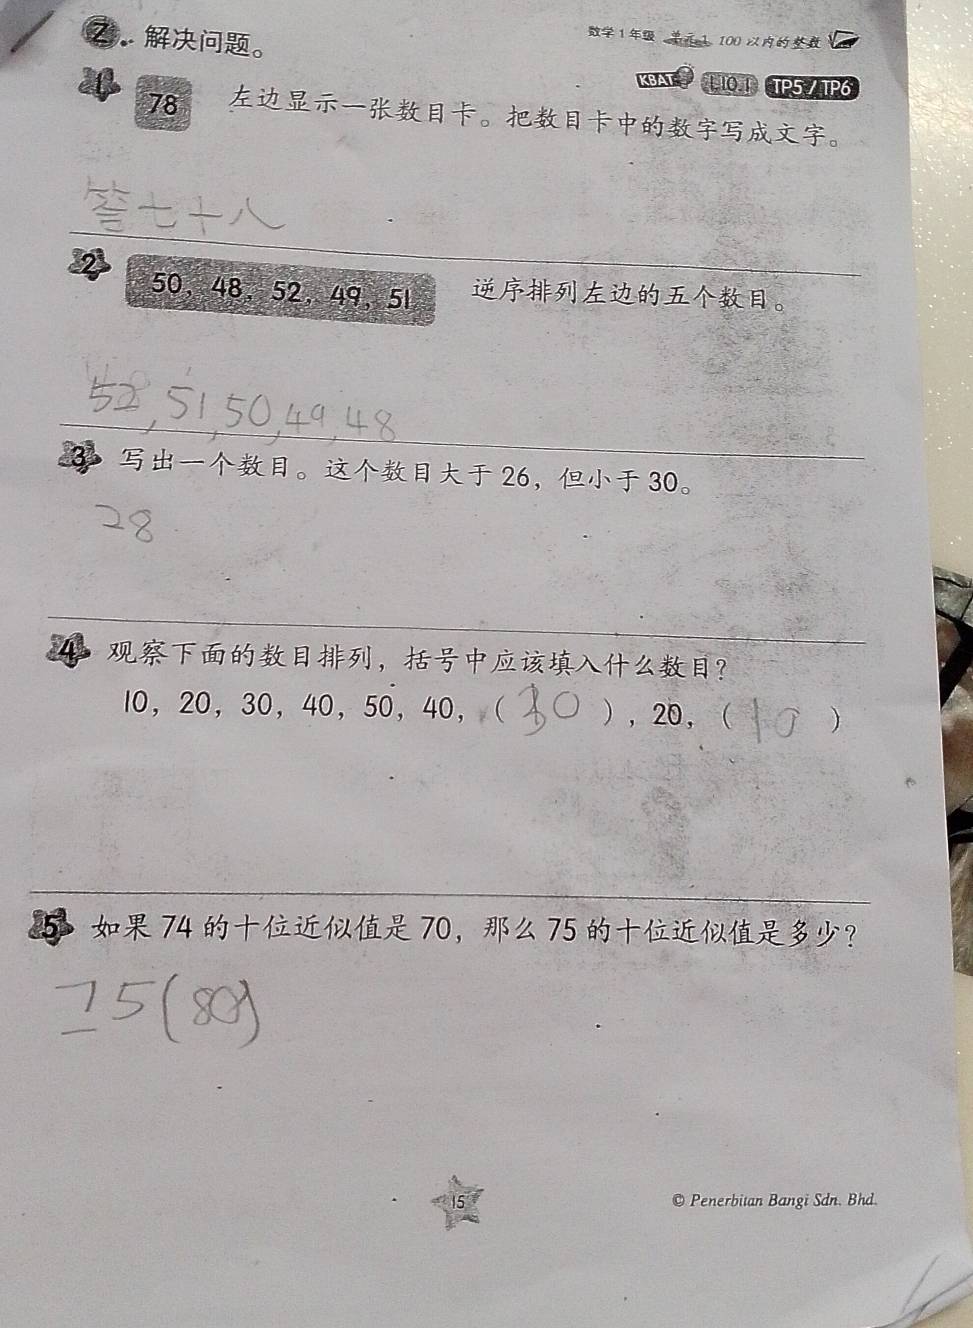 Z. 解决问题。
数学 1 年级 单元 1 100 以内的整数
KBAT 1.10.1 TP5 / TP6
1 78 左边显示一张数目卡。把数目卡中的数字写成文字。
答七十八
2 50, 48, 52, 49, 51 逆序排列左边的五个数目。
52, 51, 50, 49, 48
3 写出一个数目。这个数目大于 26，但小于 30。
28
4 观察下面的数目排列，括号中应该填入什么数目？
10, 20, 30, 40, 50, 40, ( 30 ), 20, ( 10 )
5 如果 74 的十位近似值是 70，那么 75 的十位近似值是多少？
75(80)
15
© Penerbitan Bangi Sdn. Bhd.